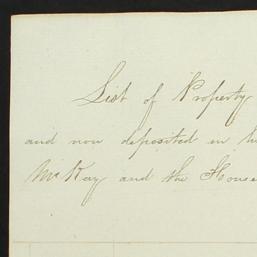 List of Property
and now deposited in
McKay and the House